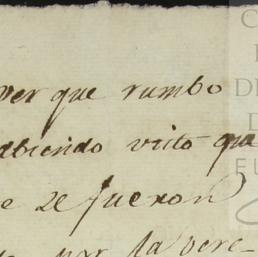 ver que rumbo
abiendo visto que
e se fueron
por la vere-